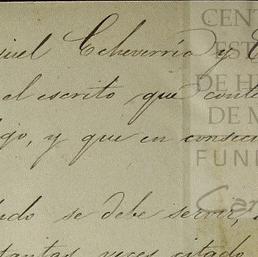 Echeverría y
el escrito que conte
go, y que en consecu
se debe servir,
tantas veces citado
CENT
EST
DE H
DE M
FUN
Car